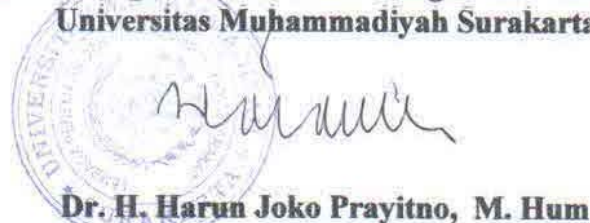 Universitas Muhammadiyah Surakarta
UNIVERSITAS
Dr. H. Harun Joko Prayitno, M. Hum